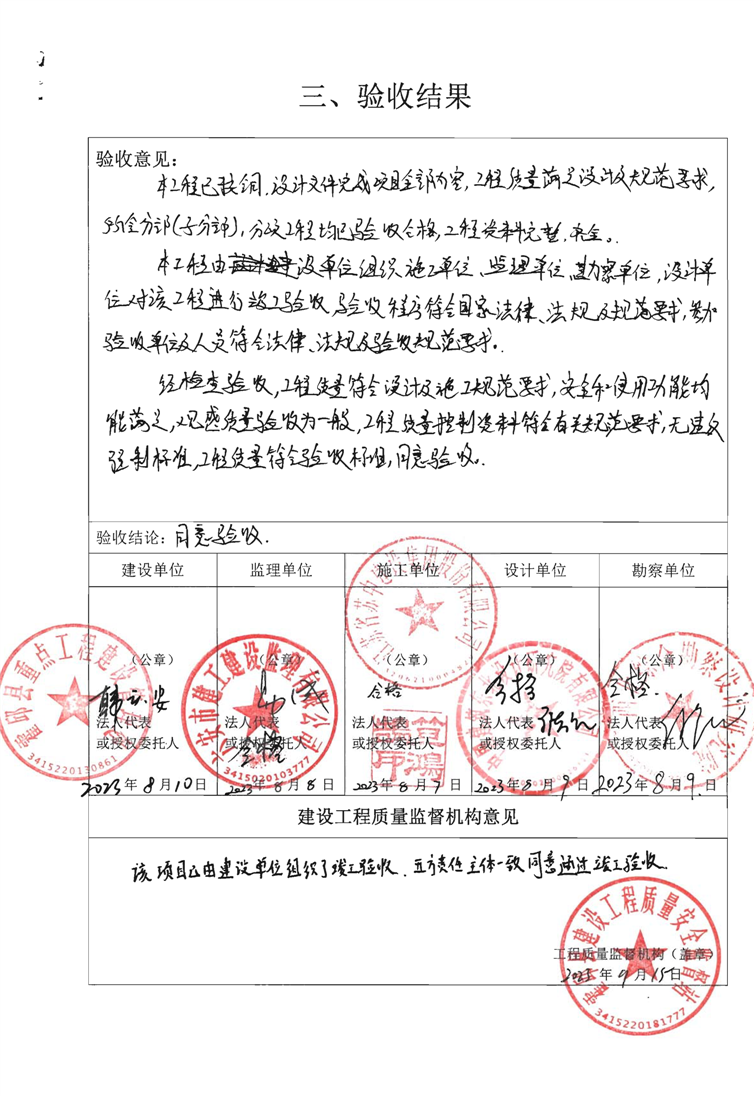 三、验收结果
验收意见:
本工程已按合同、设计文件完成项目全部内容,工程质量满足设计及规范要求,
所含分部(子分部),分项工程均已验收合格,工程资料完整,齐全。
本工程由建设单位组织施工单位、监理单位、勘察单位,设计单
位对该工程进行竣工验收,验收程序符合国家法律、法规及规范要求,参加
验收单位及人员符合法律、法规及验收规范要求。
经检查验收,工程质量符合设计及施工规范要求,安全和使用功能均
能满足,观感质量验收为一般,工程质量控制资料符合有关规范要求,无违反
强制标准,工程质量符合验收标准,同意验收。
验收结论: 同意验收.
建设单位 监理单位 施工单位 设计单位 勘察单位
(公章) (公章) (公章) (公章)
合格 合格 合格 合格
法人代表 法人代表 法人代表 法人代表
或授权委托人 或授权委托人 或授权委托人 或授权委托人
2023年8月10日 2023年8月8日 2023年8月7日 2023年8月9日 2023年8月9日
霍邱县重点工程建设
3415220130861
六安市建工建设监理有限公司
3415020103777
江苏省苏中建设集团股份有限公司
勘察设计研究院
建设工程质量监督机构意见
该项目已由建设单位组织了竣工验收、五方责任主体一致同意通过竣工验收.
工程质量监督机构(盖章)
2023年9月15日
霍邱县建设工程质量安全监督站
3415220181777